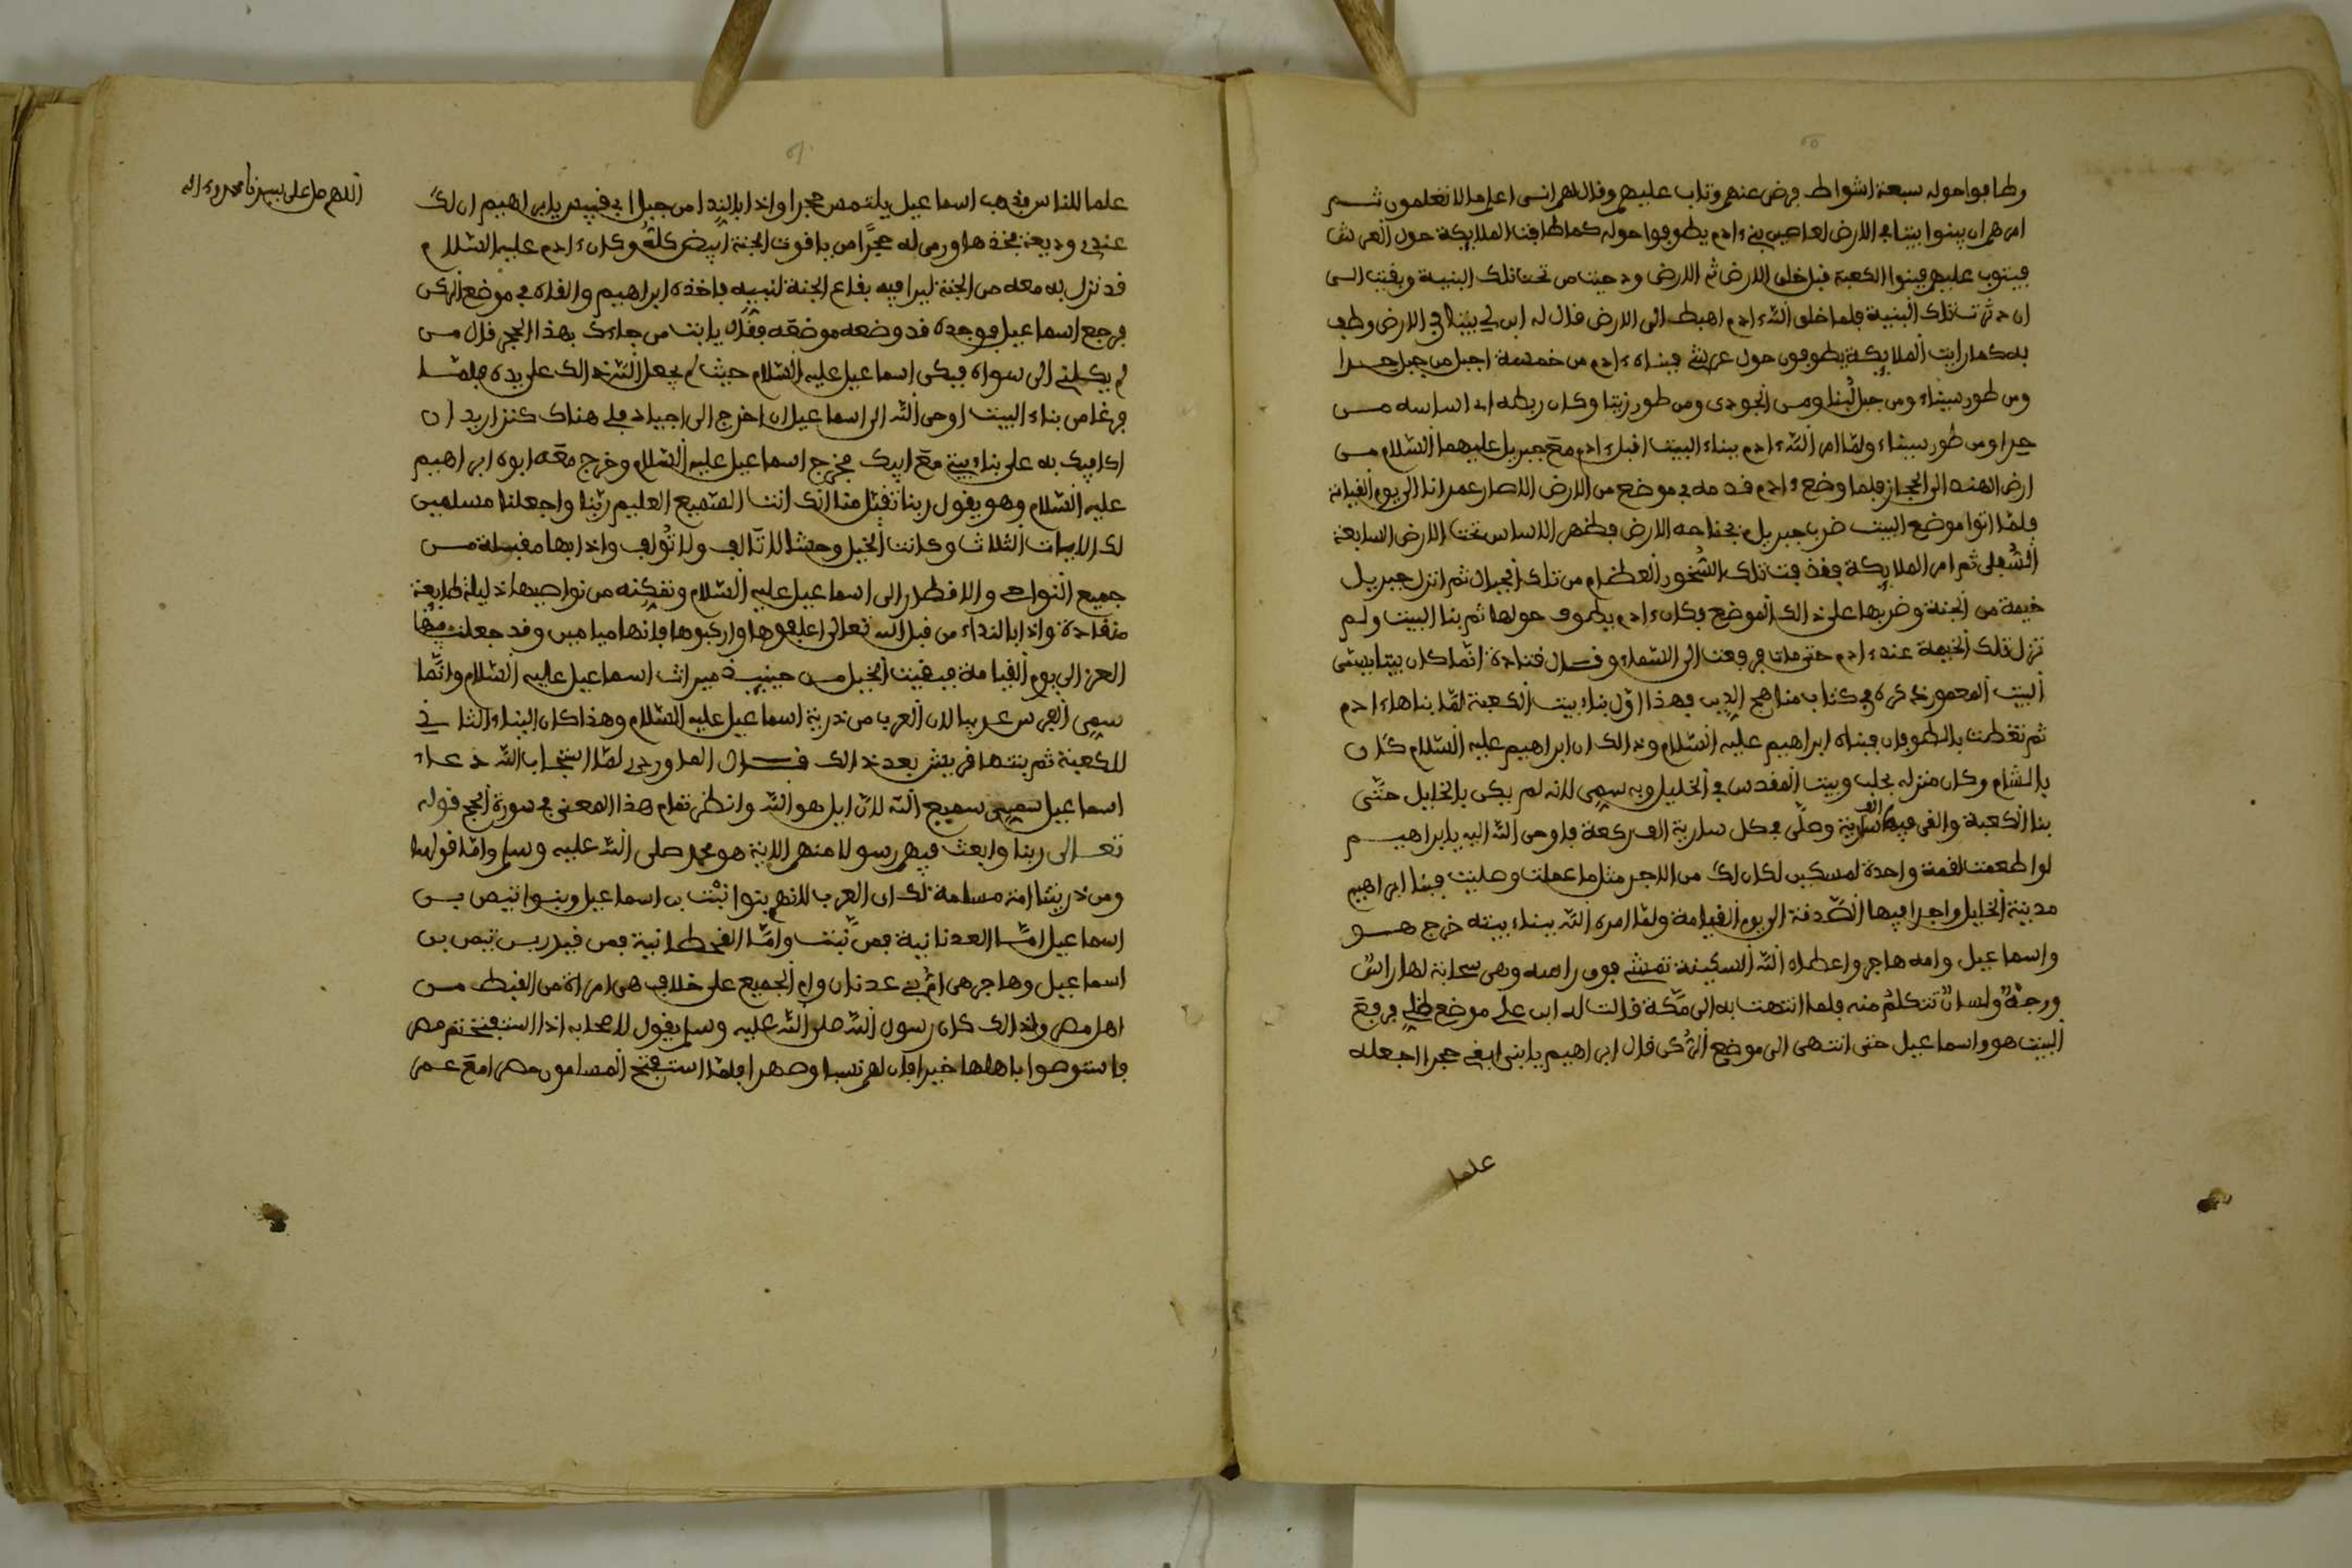 وطافوا حوله سبعة اشواط فرض عنهم وتاب عليهم وقال لهم انى اعلم ما لا تعلمون ثم
امرهم ان يبنوا بيتا في الارض لعاصين بنى ءادم يطوفوا حوله كما طافت الملايكة حول العرش
فيتوب عليهم فبنوا الكعبة قبل خلق الارض ثم الارض ودحيت من تحت تلك البنية وبقيت الى
ان دثرت تلك البنية فلما خلق الله ءادم اهبطه الى الارض قال له ابن لي بيتا في الارض وطف
به كما رايت الملايكة يطوفون حول عرشي فبناه ءادم من خمسة اجبل من جبل حرا
ومن طور سيناء ومن جبل لبنا ومن الجودي ومن طور زيتا وكان ربطه اى اساسه من
حراومن طور سيناء ولما امر الله ءادم ببناء البيت اقبل ءادم مع جبريل عليهما السلام من
ارض الهند الى الحجاز فلما وضع ءادم قدمه في موضع من الارض الا صار عمرانا الى يوم القيامة
فلما اتوا موضع البيت ضرب جبريل بجناحه الارض فظهر الاساس تحت الارض السابعة
السفلى ثم امر الملايكة فقذفت تلك الصخور العظام من تلك الجبال ثم انزل جبريل
خيمة من الجنة وضربها على ذالك الموضع فكان ءادم يطوف حولها ثم بنا البيت ولم
تزل تلك الخيمة عند ءادم حتى مات فرفعت الى السماء وقال قتادة انما كان بيتا يسمى
البيت المعمور ذكره في كتاب مناهج الدين فهذا اول بناء بيت الكعبة لما بناها ءادم
ثم تغطت بالطوفان فبناه ابراهيم عليه السلام وذالك ان ابراهيم عليه السلام كان
بالشام وكان منزله بحلب وبيت المقدس في الخليل وبه سمى لانه لم يكن بالخليل حتى
بنا الكعبة والقى فيها الف سارية وصلى في كل سارية الف ركعة فاوحى الله اليه يا ابراهيم
لو اطعمت لقمة واحدة لمسكين لكان لك من الاجر مثل ما عملت وصليت فبنا ابراهيم
مدينة الخليل واجرا فيها الصدقة الى يوم القيامة ولما امره الله ببناء بيته خرج هو
واسماعيل وامه هاجر واعطاه الله السكينة تمشي فوق راسه وهي سحابة لها راس
ورجه ولسان تتكلم منه فلما انتهت به الى مكة قالت له ابن على موضع ظلي فرفع
البيت هو واسماعيل حتى انتهى الى موضع الركن قال ابراهيم يا بنى ابغى حجرا اجعله
علما
اللهم صل على سيدنا محمد وءاله
علما للناس فذهب اسماعيل يلتمس حجرا واذا بالندا من جبل ابى قبيس يا ابراهيم ان لك
عندي وديعة فخذها ورمى له حجرا من ياقوت الجنة ابيض كله وكان ءادم عليه السلام
قد نزل به معه من الجنة ليرا فيه بقاع الجنة لنبيه فاخذه ابراهيم والقاه في موضع الركن
فرجع اسماعيل فوجده قد وضعه موضعه فقال يا ابت من جاءك بهذا الحجر قال من
لم يكلني الى سواه فبكى اسماعيل عليه السلام حيث لم يجعل الله ذالك على يده فلما
فرغا من بناء البيت اوحى الله الى اسماعيل ان اخرج الى اجياد فلي هناك كنز اريد ان
اكافيك به على بناء بيتي مع ابيك فخرج اسماعيل عليه السلام وخرج معه ابوه ابراهيم
عليه السلام وهو يقول ربنا تقبل منا انك انت السميع العليم ربنا واجعلنا مسلمين
لك الايات الثلاث وكانت الخيل وحشا لا تالف ولا تولف واذا بها مقبلة من
جميع النواحى والاقطار الى اسماعيل عليه السلام وتمكنه من نواصيها ذليلة طايعة
منقادة واذا بالنداء من قبل الله تعالى اعلفوها واركبوها فانها ميامين وقد جعلت فيها
العز الى يوم القيامة فبقيت الخيل من حينيذ ميراث اسماعيل عليه السلام وانما
سمى الفرس عربيا لان العرب من ذرية اسماعيل عليه السلام وهذا كان البناء الثاني
للكعبة ثم بنتها قريش بعد ذالك قال الماوردي لما استجاب الله دعاء
اسماعيل سمى سميع الله لان ايل هو الله وانظر تمام هذا المعنى في سورة الحج قوله
تعالى ربنا وابعث فيهم رسولا منهم الاية هو محمد صلى الله عليه وسلم واما قولهما
ومن ذريتنا امة مسلمة لك ان العرب لانهم بنوا نبت بن اسماعيل وبنوا تيص بن
اسماعيل اما العدنانية فمن نبت واما القحطانية فمن قيدر بن تيص بن
اسماعيل وهاجر هى ام بنى عدنان وام الجميع على خلاف هى امراة من القبط من
اهل مصر ولذالك كان رسول الله صلى الله عليه وسلم يقول لاصحابه اذا استفتحتم مصر
فاستوصوا باهلها خيرا فان لهم نسبا وصهرا فلما استفتح المسلمون مصر امع عمر